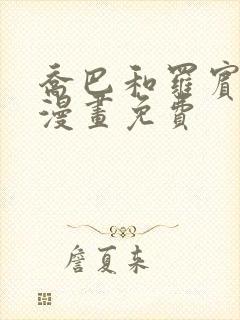 喬巴和羅賓
漫畫免費
詹夏來